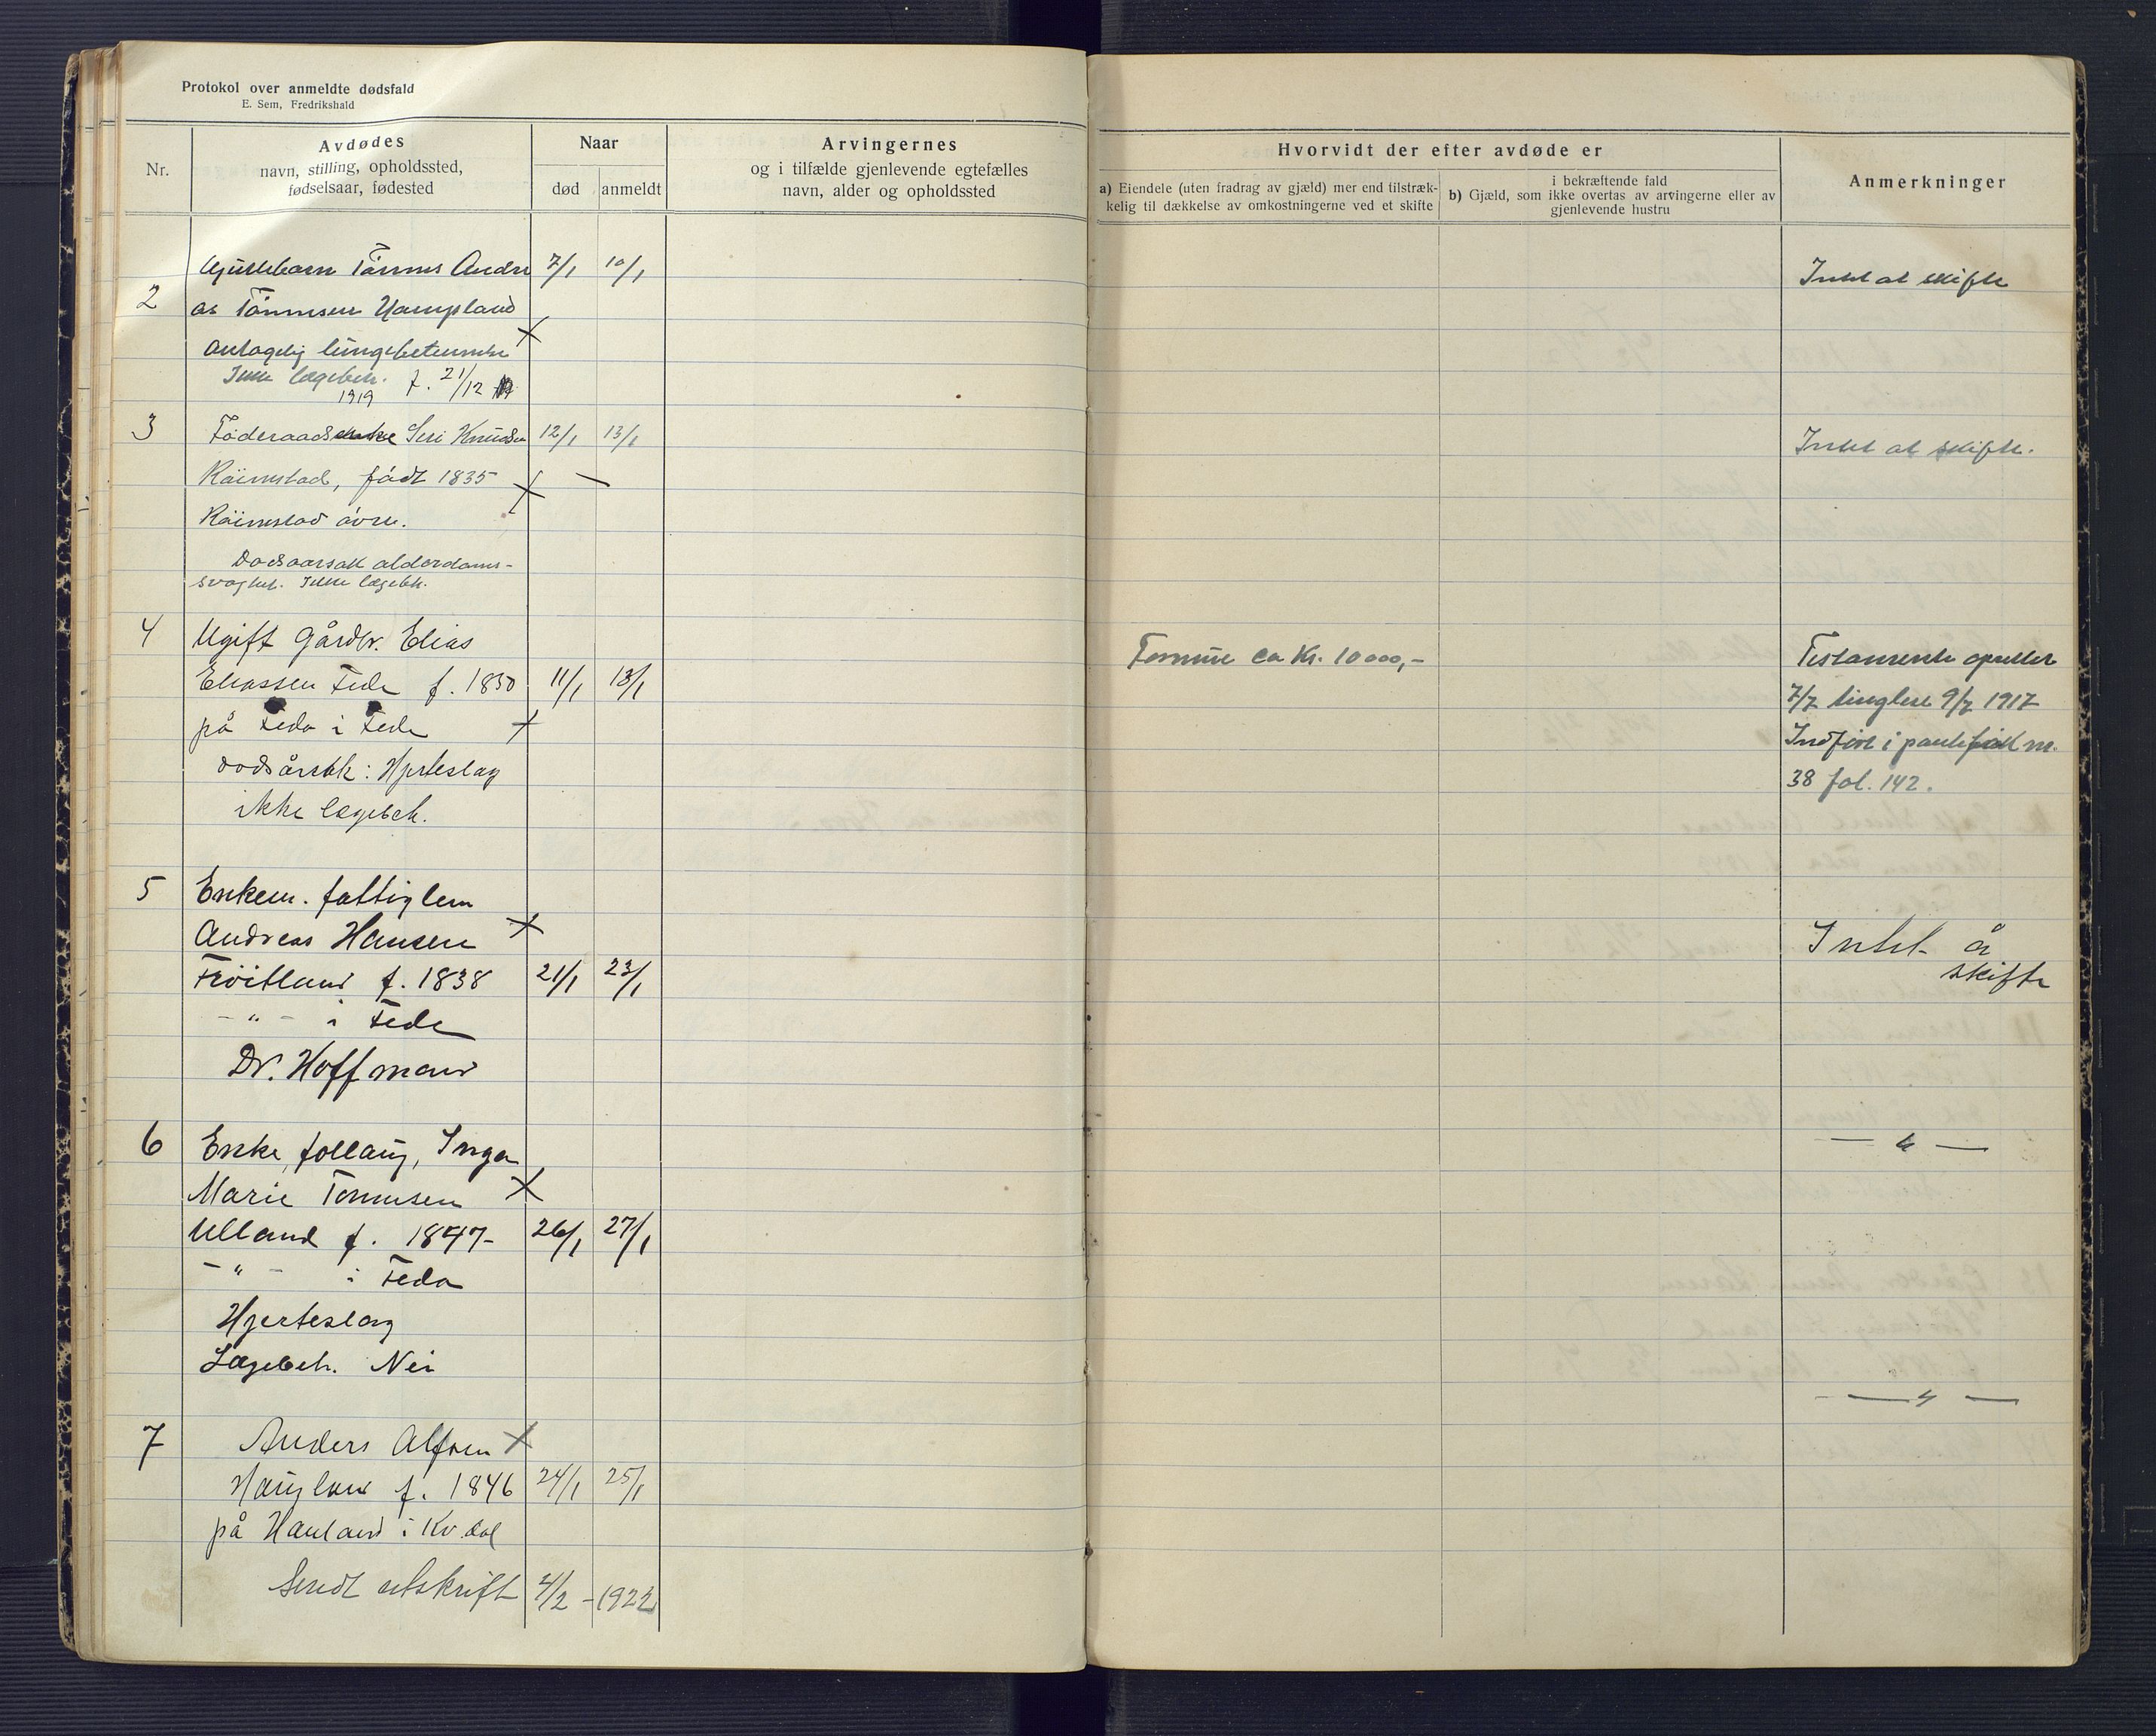 Protokol over anmeldte dødsfald
E. Sem, Fredrikshald
Nr.
Avdødes
navn, stilling, opholdssted,
fødselsaar, fødested
Naar
død
anmeldt
Arvingernes
og i tilfælde gjenlevende egtefælles
navn, alder og opholdssted
Hvorvidt der efter avdøde er
a) Eiendele (uten fradrag av gjæld) mer end tilstræk-
kelig til dækkelse av omkostningerne ved et skifte
i bekræftende fald
b) Gjæld, som ikke overtas av arvingerne eller av
gjenlevende hustru
Anmerkninger
Tønnes Andre 7/1 10/1 Intet at skifte
2 as Tønnesen Haugland
Antagelig lungebetennelse
Ikke lægebeh. f. 21/12
1919
3 Føderaadsenke Seri Knudsen 12/1 13/1 Intet at skifte.
Røimstad, født 1835
Røimstad øvre.
Dødsaarsak alderdoms-
svaghet. Ikke lægebeh.
4 Ugift Gårdbr. Elias Formue ca Kr. 10000,- Testamente oprettet
Eliassen Feda f. 1850 11/1 13/1 7/7 tinglest 9/7 1917
på Feda i Feda Indført i nr.
dødsårsak: Hjerteslag 38 fol. 142.
ikke lægebeh.
5 Enkem. fattiglem
Andreas Hansen Intet å
Frøitland f. 1838 21/1 23/1 skifte
- " - i Feda
Dr. Hoffmann
6 Enke, follaug, Inga — " —
Marie Tønnesen
Ulland f. 1847 26/1 27/1
- " - i Feda
Hjerteslag
Lægebeh. Nei
— " —
7 Anders Alfsen
Haugland f. 1846 24/1 25/1
på Hauland i Kv.dal
Sendt utskrift 4/2 - 1922